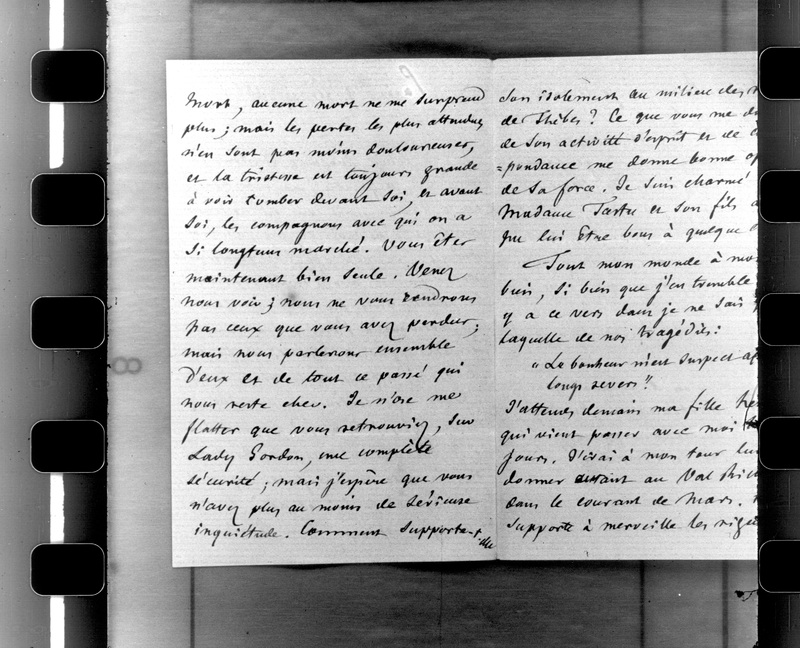 mort, aucune mort ne me surprend
plus; mais les pertes les plus attendues
n'en sont pas moins douloureuses,
et la tristesse est toujours grande
à voir tomber devant soi, et avant
soi, les compagnons avec qui on a
si longtems marché. Vous êtes
maintenant bien seule. Venez
nous voir; nous ne vous rendrons
pas ceux que vous avez perdus;
mais nous parlerons ensemble
d'eux et de tout ce passé qui
nous reste cher. Je n'ose me
flatter que vous retrouviez, sur
Lady Gordon, une complète
sécurité; mais j'espère que vous
n'avez plus au moins de sérieuse
inquiétude. Comment supporte-t-
elle
son isolement au milieu des
de Thèbes? Ce que vous me
de son activité d'esprit et de
=pondance me donne bonne
de sa force. Je suis charmé
Madame Tastu et son fils
pu lui être bons à quelque
Tout mon monde à moi
bien, si bien que j'en tremble
y a ce vers dans je ne sais
laquelle de nos tragédies:
"Le bonheur m'est suspect
longs revers".
J'attends demain ma fille
qui vient passer avec moi
jours. J'irai à mon tour
donner autant au Val Rich
dans le courant de Mars.
supporte à merveille les